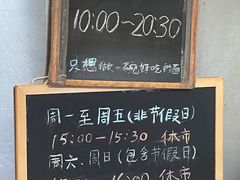 10:00-20:30
只想做一碗好吃的面
周一至周五(非节假日)
15:00-15:30 休市
周六、周日(包含节假日)
16:00 休市